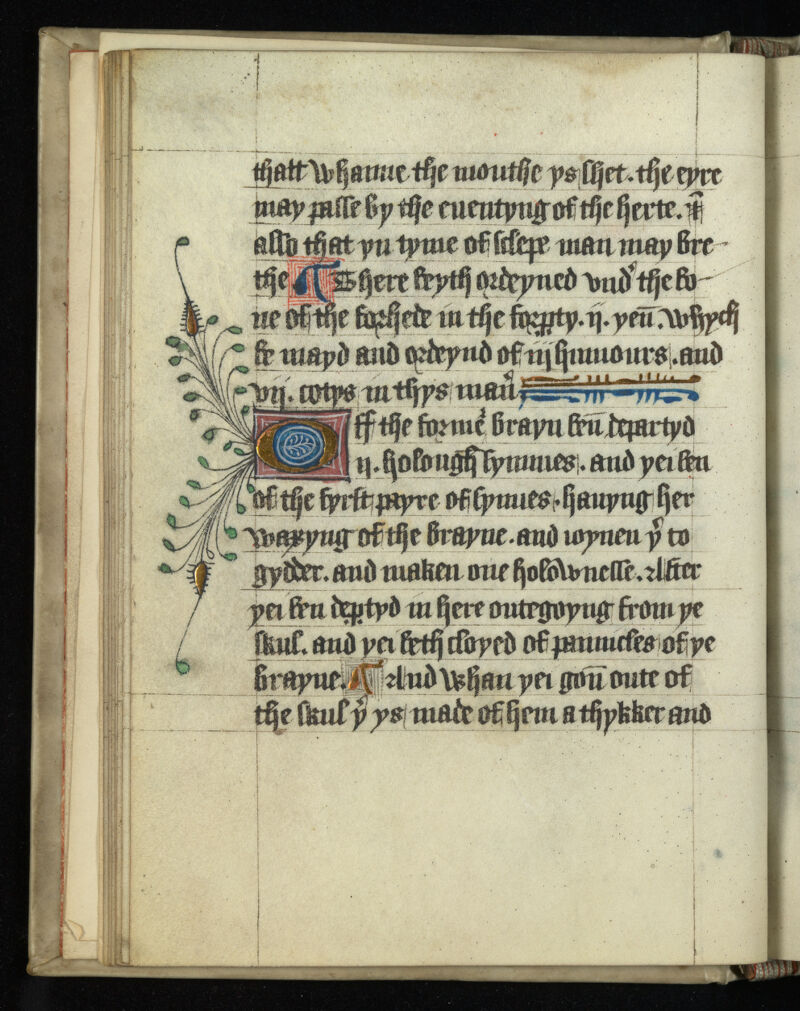 thatt whanne the mouthe ys shet. the eyre
may passe by the euentyng of the herte. &
also that yn tyme of sclepe man may bre-
the ¶ There beyth ordeyned vnd' the bo-
ne of the forhede in the forpty. ij. yen̄. whych
be mayd and ordeynd of iij humours. and
vij. cotys in thys man̄'
Off the forme' brayn ben̄ departyd
ij. holough lymmes. and yei ben
of the fyrst payre of synues. hauyng her
waxyng of the brayne. and ioynen y' to
gydder. and maken one holownesse. After
yei ben deptyd in here outegoyng from ye
skul. and yei beth cloyed of pannicles of ye
brayne. ¶ And whan yei gon̄ oute of
the skul y' ys made of hem a thykker and